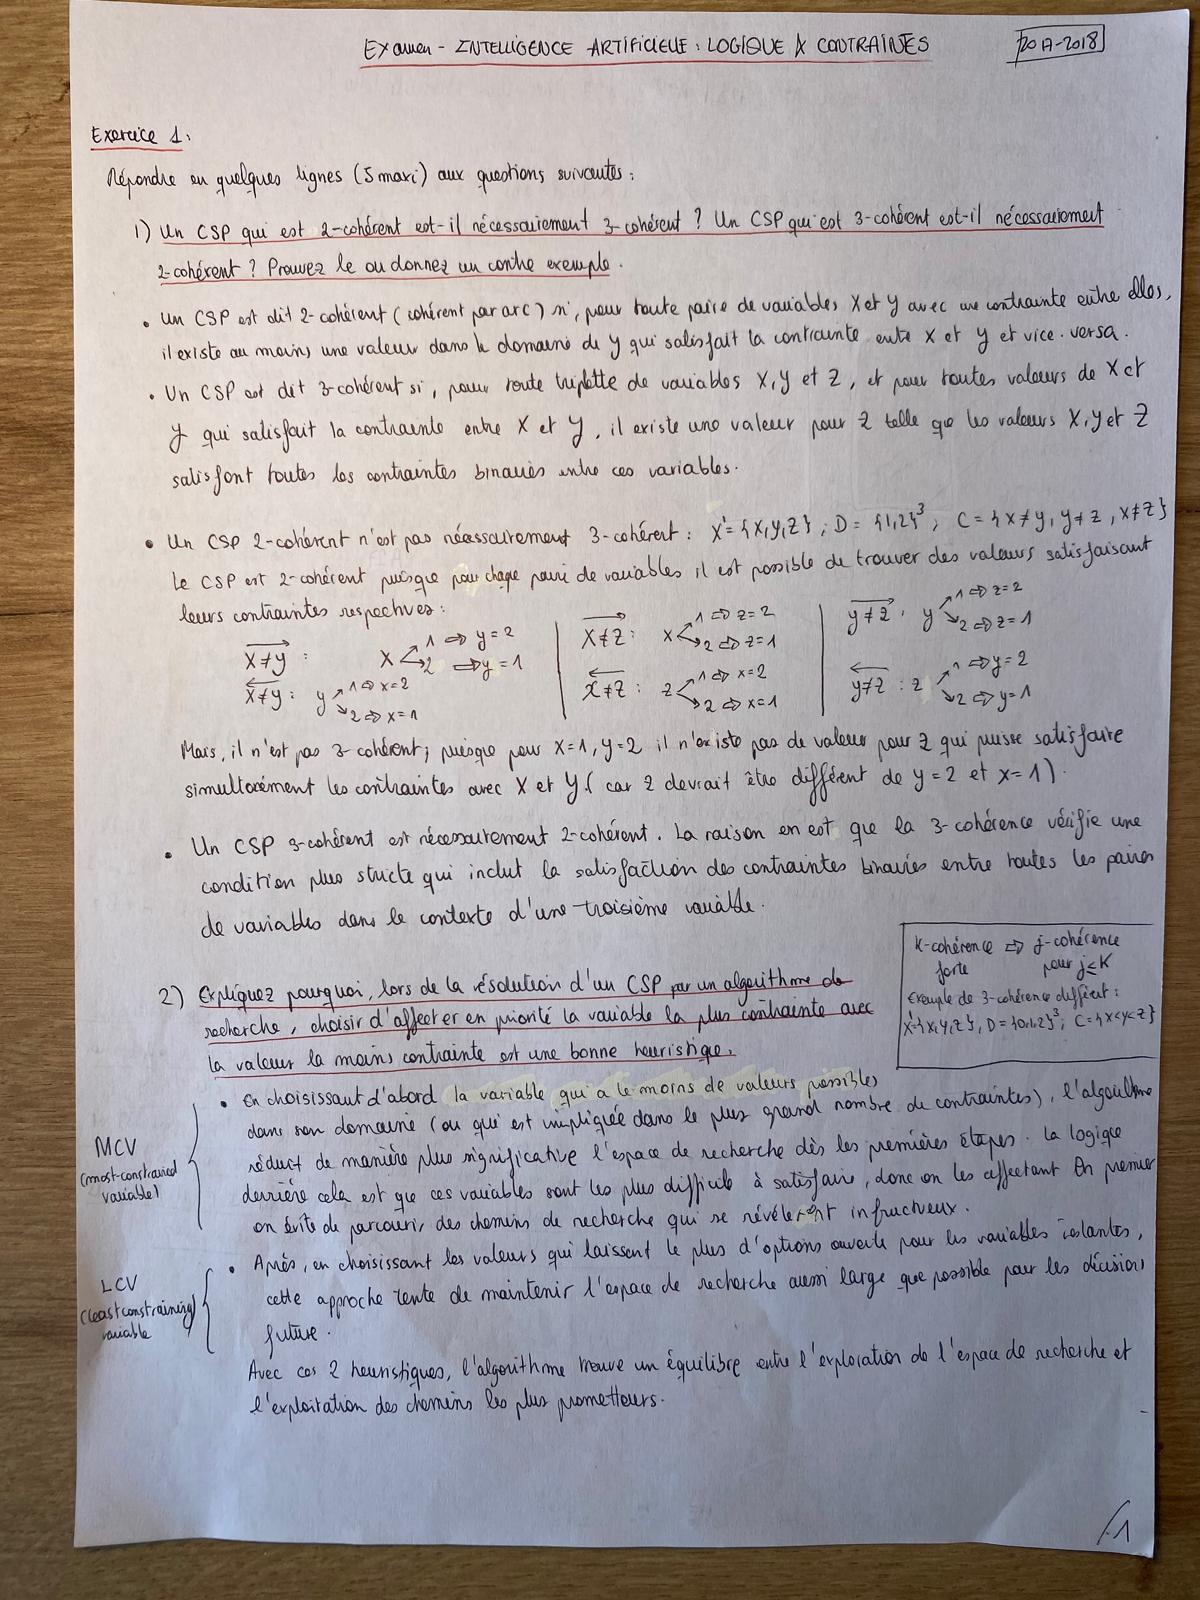 Examen - INTELLIGENCE ARTIFICIELLE : LOGIQUE & CONTRAINTES
2017-2018
Exercice 1 :
Répondre en quelques lignes (5 maxi) aux questions suivantes :
1) Un CSP qui est 2-cohérent est-il nécessairement 3-cohérent ? Un CSP qui est 3-cohérent est-il nécessairement
2-cohérent ? Prouvez le ou donnez un contre exemple.
• Un CSP est dit 2-cohérent (cohérent par arc) si, pour toute paire de variables X et Y avec une contrainte entre elles,
il existe au moins une valeur dans le domaine de Y qui satisfait la contrainte entre X et Y et vice-versa.
• Un CSP est dit 3-cohérent si, pour toute triplette de variables X, Y et Z, et pour toutes valeurs de X et
Y qui satisfait la contrainte entre X et Y, il existe une valeur pour Z telle que les valeurs X, Y et Z
satisfont toutes les contraintes binaires entre ces variables.
• Un CSP 2-cohérent n'est pas nécessairement 3-cohérent : X' = {X,Y,Z} ; D = {1,2}³ ; C = {X≠Y, Y≠Z, X≠Z}
Le CSP est 2-cohérent puisque pour chaque paire de variables il est possible de trouver des valeurs satisfaisant
leurs contraintes respectives :
X≠Y : X 1 ⇒ y = 2
2 ⇒ y = 1
X≠Y : y 1 ⇒ x = 2
2 ⇒ x = 1
X≠Z : X 1 ⇒ z = 2
2 ⇒ z = 1
X≠Z : z 1 ⇒ x = 2
2 ⇒ x = 1
Y≠Z : y 1 ⇒ z = 2
2 ⇒ z = 1
Y≠Z : z 1 ⇒ y = 2
2 ⇒ y = 1
Mais, il n'est pas 3-cohérent ; puisque pour X=1, Y=2 il n'existe pas de valeur pour Z qui puisse satisfaire
simultanément les contraintes avec X et Y ( car Z devrait être différent de y = 2 et x = 1 ).
• Un CSP 3-cohérent est nécessairement 2-cohérent. La raison en est que la 3-cohérence vérifie une
condition plus stricte qui inclut la satisfaction des contraintes binaires entre toutes les paires
de variables dans le contexte d'une troisième variable.
K-cohérence ⇒ j-cohérence
forte pour j≤K
Exemple de 3-cohérence différent :
X'={X,Y,Z}, D = {0,1,2}³ ; C = {X<Y<Z}
2) Expliquez pourquoi, lors de la résolution d'un CSP par un algorithme de
recherche, choisir d'affecter en priorité la variable la plus contrainte avec
la valeur la moins contrainte est une bonne heuristique.
MCV
(most-constrained
variable)
• En choisissant d'abord la variable qui a le moins de valeurs possibles
dans son domaine (ou qui est impliquée dans le plus grand nombre de contraintes), l'algorithme
réduit de manière plus significative l'espace de recherche dès les premières étapes. La logique
derrière cela est que ces variables sont les plus difficile à satisfaire, donc en les affectant en premier
on évite de parcourir des chemins de recherche qui se révéleront infructueux.
LCV
(least constraining)
variable
• Après, en choisissant les valeurs qui laissent le plus d'options ouverte pour les variables restantes,
cette approche tente de maintenir l'espace de recherche aussi large que possible pour les décisions
future.
Avec ces 2 heuristiques, l'algorithme trouve un équilibre entre l'exploration de l'espace de recherche et
l'exploitation des chemins les plus prometteurs.
/1